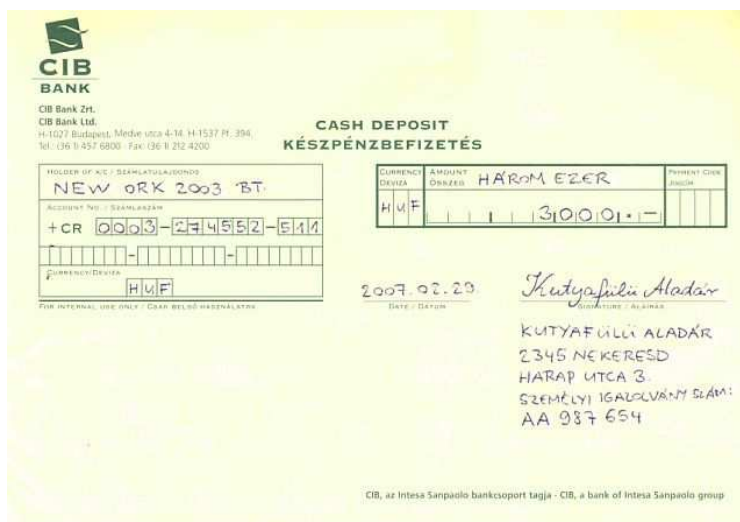 CIB
BANK
CIB Bank Zrt.
CIB Bank Ltd.
H-1027 Budapest, Medve utca 4-14. H-1537 Pf. 394.
Tel.: (36 1) 457 6800 · Fax: (36 1) 212 4200
CASH DEPOSIT
KÉSZPÉNZBEFIZETÉS
HOLDER OF A/C / SZÁMLATULAJDONOS
NEW ORK 2003 BT.
ACCOUNT NO. / SZÁMLASZÁM
+CR 0003-274552-511
CURRENCY/DEVIZA
HUF
FOR INTERNAL USE ONLY / CSAK BELSŐ HASZNÁLATRA
CURRENCY DEVIZA
HUF
AMOUNT ÖSSZEG HÁROM EZER
3000.-
PAYMENT CODE
JOGCÍM
2007.02.29.
DATE / DÁTUM
Kutyafülü Aladár
SIGNATURE / ALÁÍRÁS
KUTYAFÜLÜ ALADÁR
2345 NEKERESD
HARAP UTCA 3.
SZEMÉLYI IGAZOLVÁNY SZÁM:
AA 987 654
CIB, az Intesa Sanpaolo bankcsoport tagja - CIB, a bank of Intesa Sanpaolo group